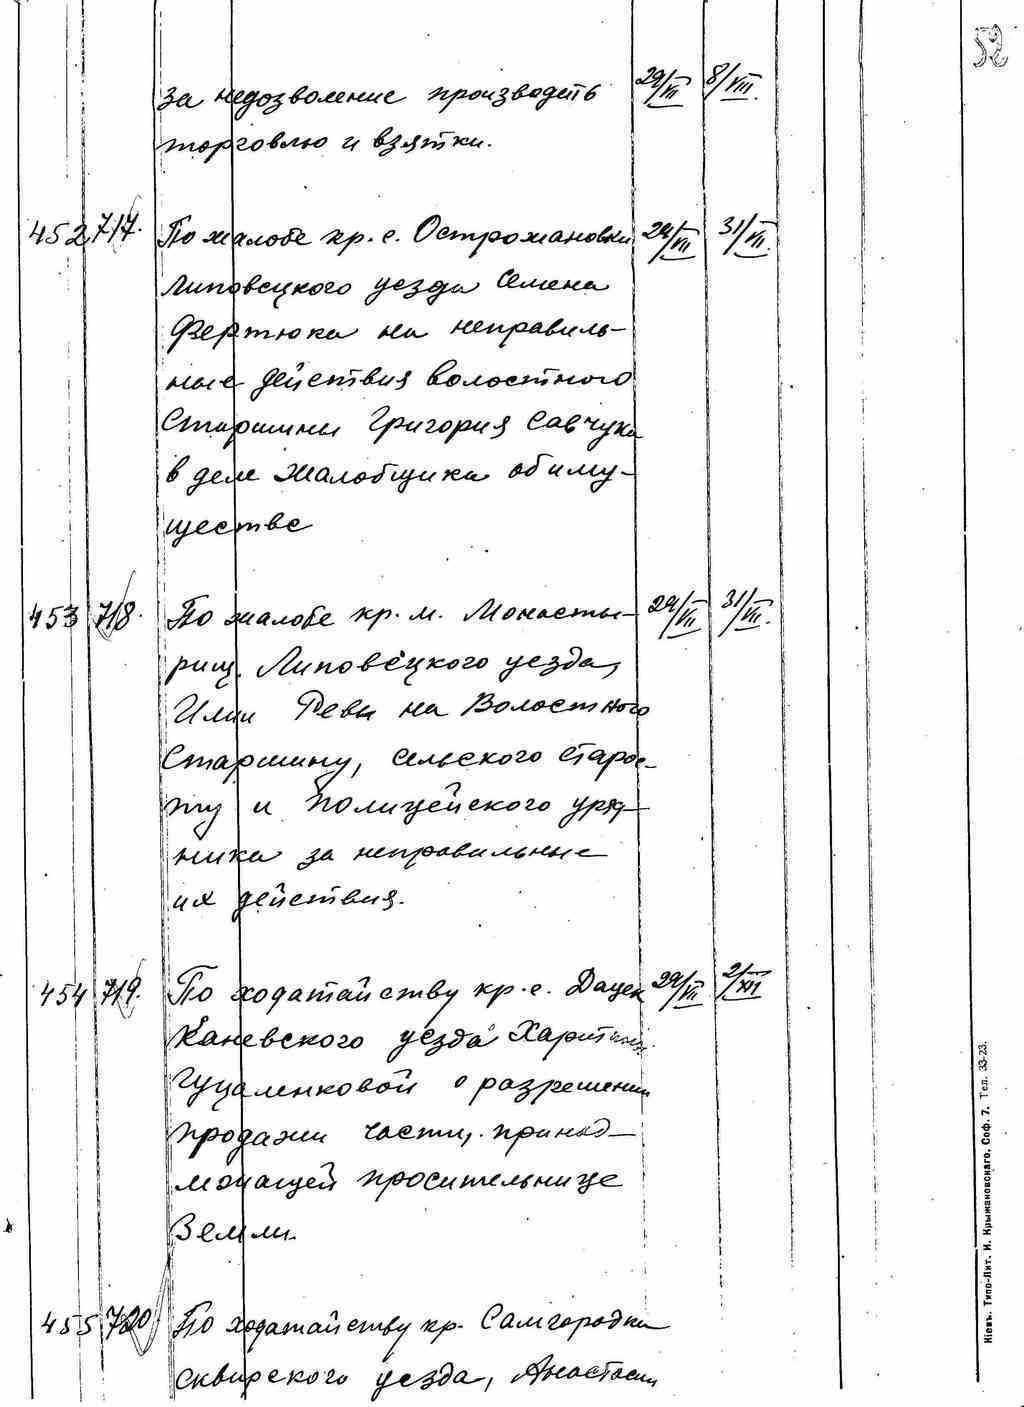 52
за недозволение производить 29/VII 8/VIII.
торговлю и взятки.
452 717. По жалобе кр. с. Острожановки 29/VII 31/VII.
Липовецкого уезда Семена
Фертюка на неправиль-
ные действия волостного
Старшины Григория Савчука
в деле жалобщика об иму-
ществе
453 718. По жалобе кр. м. Монасты- 29/VII 31/VII.
рищ Липовецкого уезда,
Илии Ревы на Волостного
Старшину, сельского старос-
ту и полицейского уряд-
ника за неправильные
их действия.
454 719. По ходатайству кр. с. Дацек 29/VII 2/XII
Каневского уезда
Гуцаленковой о разрешении
продажи части, принад-
лежащей просительнице
Земли.
455 720 По ходатайству кр. Самгородка
Сквирского уезда, Анастасии
Кіевъ. Типо-Лит. И. Крыжановскаго, Соф. 7. Тел. 33-23.